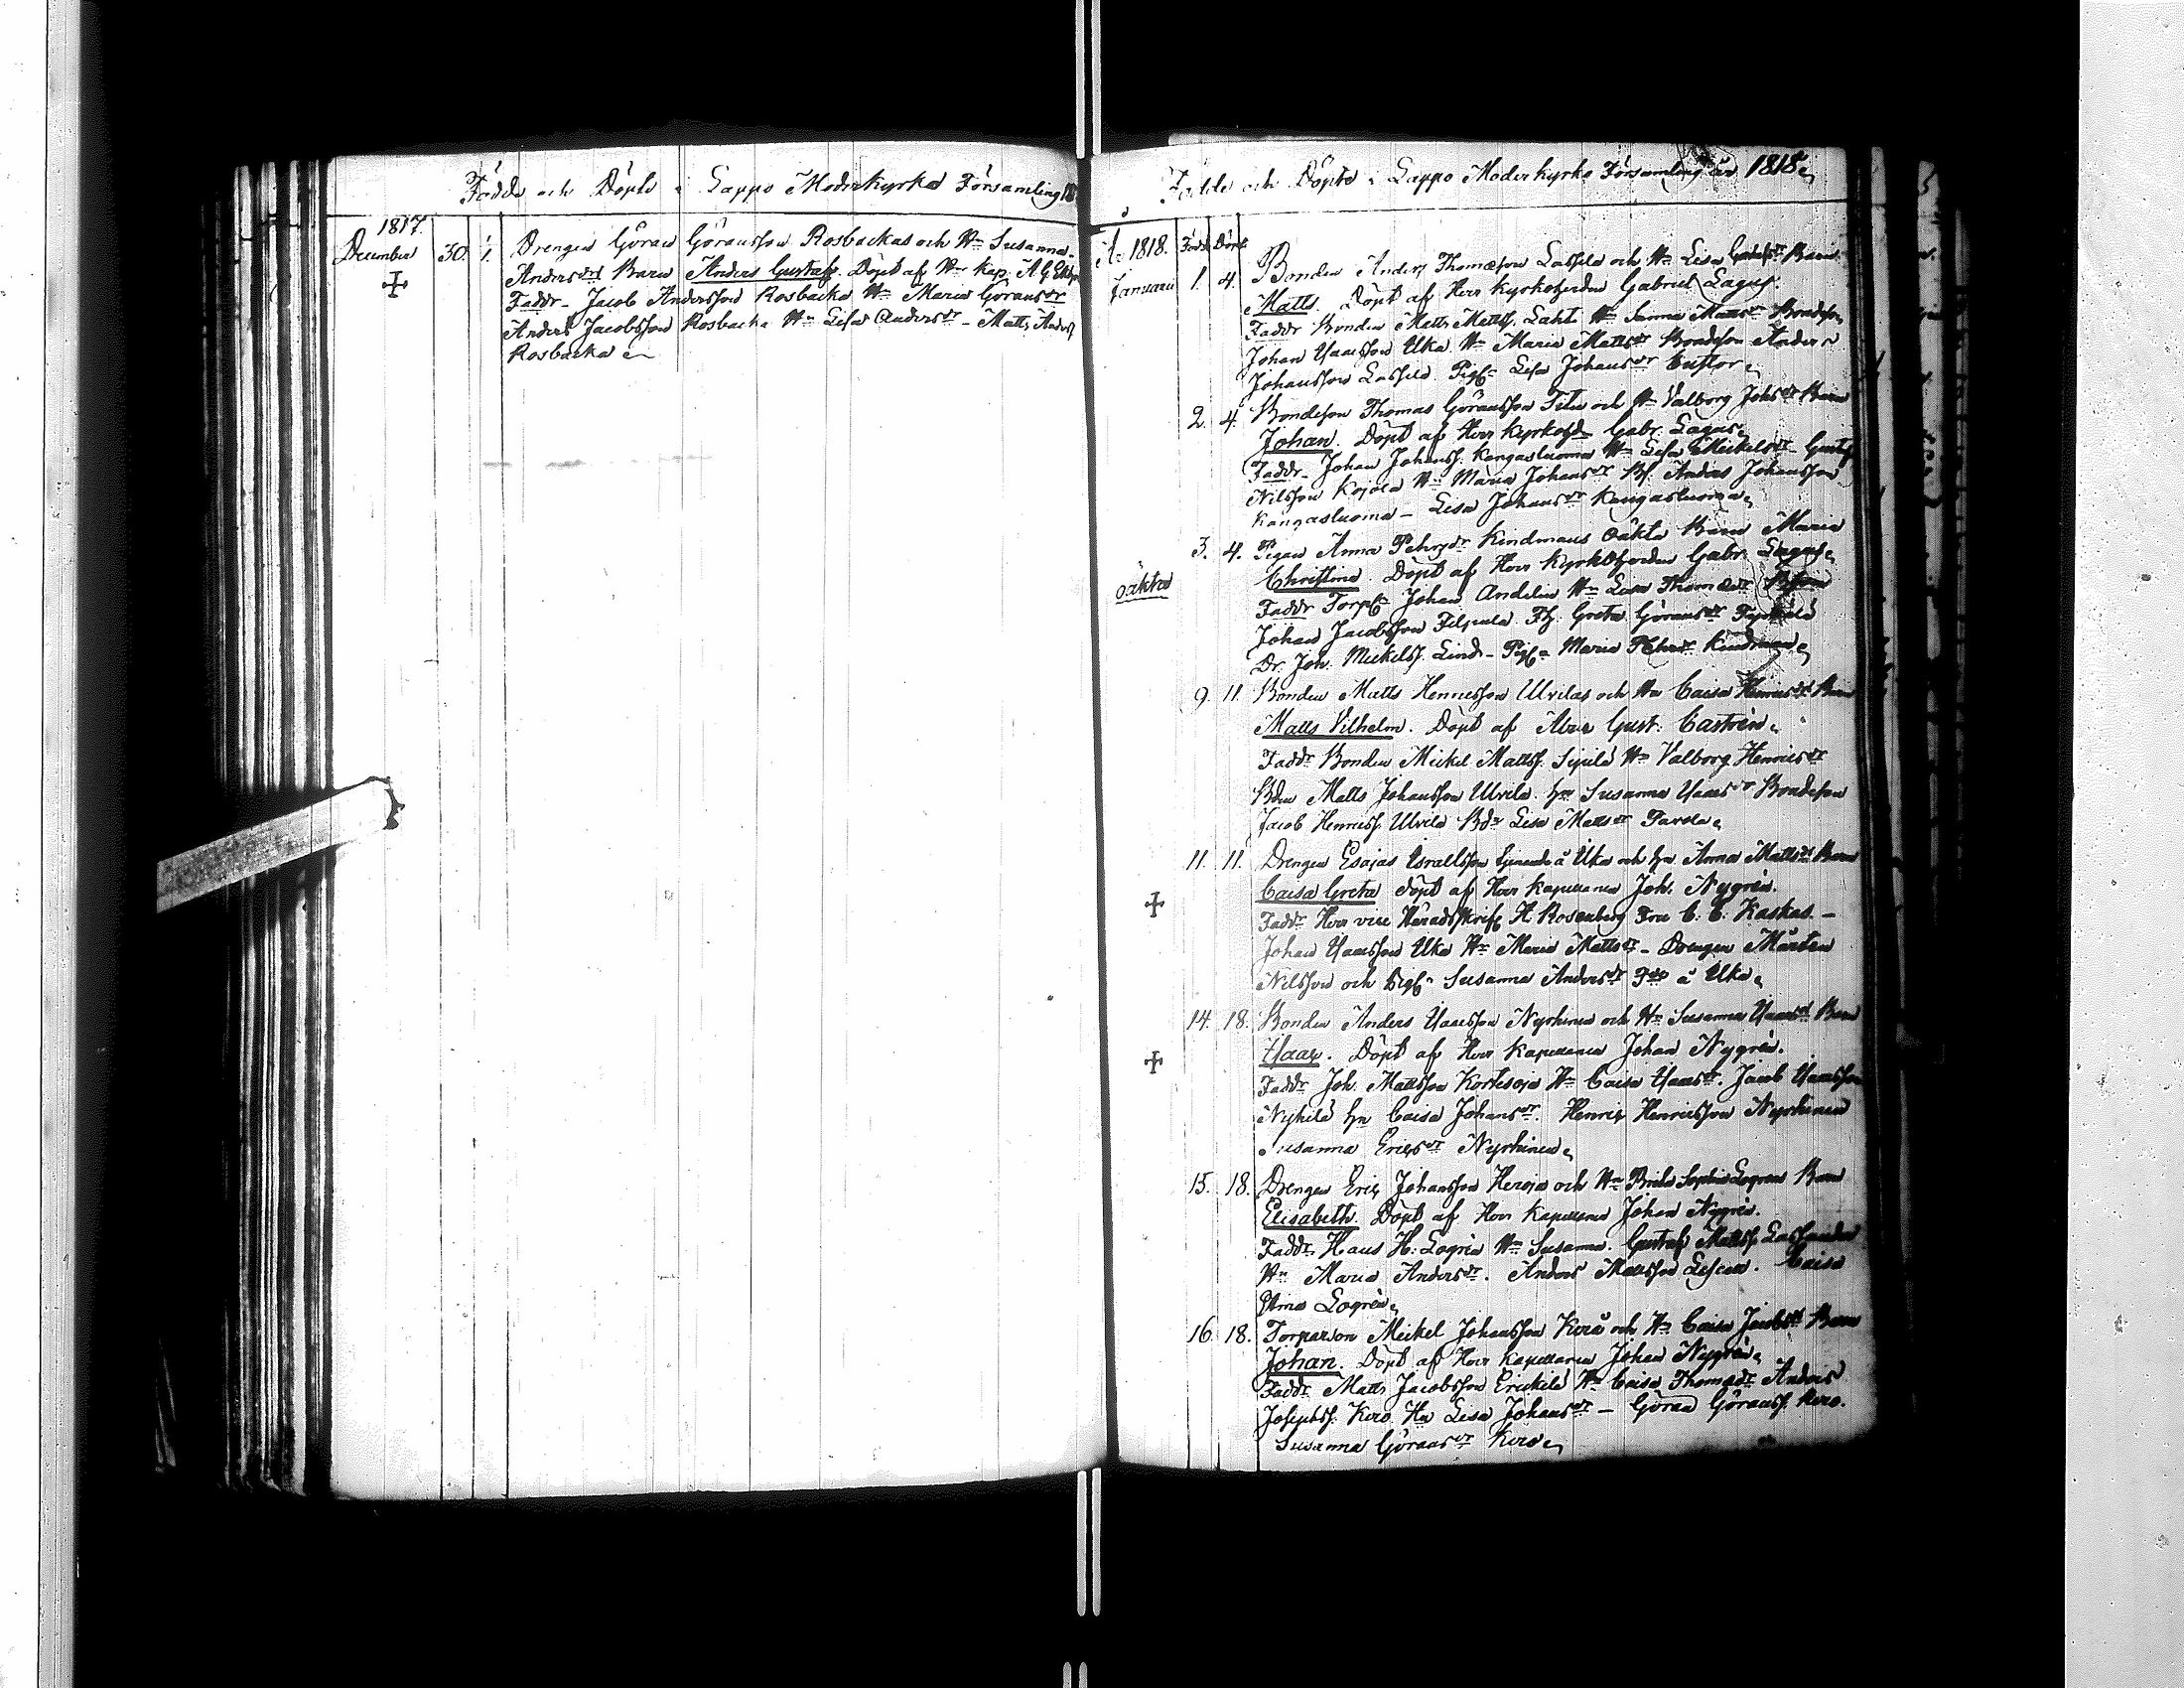 Födde och Döpte i Lappo Moderkyrko Församling 18
1817.
December 30. 1. Drengen Göran Göransson Rosbackas och Hn Susanna
Andersdrs Barn Anders Gustaf. Döpt af Hr Kap. A G
Faddr Jacob Andersson Rosbacka Hn Maria Göransdr
Anders Jacobsson Rosbacka Hn Lisa Andersdr - Matts Anders
Rosbacka
Födde och Döpte i Lappo Moderkyrko Församling år 1818
År 1818. Född Döpt
Januari 1. 4. Bonden Anders Thomasson och Hn Lisa Barn
Matts. Döpt af Herr Kyrkoherden Gabriel Lagus.
Faddr Bonden Matts Mattss. Lahti Hn Sanna Mattsdr Bondeson
Johan Isaacsson Uka Hn Maria Mattsdr Bondeson Anders
Johansson Pig. Lisa Johansdr
2. 4. Bondeson Thomas Göransson och Hn Valborg Johsdr Barn
Johan. Döpt af Herr Kyrkohd Gabr. Lagus
Faddr Johan Johanss. Kangasluoma Hn Lisa Mickelsdr Gustaf
Nilsson Kojola Hn Maria Johansdr Bs. Anders Johansson
Kangasluoma - Lisa Johansdr Kangasluoma
oäkta
3. 4. Pigan Anna Petersdr Kindmans Oäkta Barn Maria
Christina. Döpt af Herr Kyrkoherden Gabr. Lagus
Faddr Torp. Johan Andelin Hn Lisa Thomasdr
Johan Jacobsson Filpula. Greta Göransdr
Dr. Joh. Mickelss. Lind - Pig. Maria Petersdr Kindman
9. 11. Bonden Matts Henricsson Ulvilas och Hn Caisa Henricsdrs Barn
Matts Vilhelm. Döpt af Gust. Castrén
Faddr Bonden Mickel Mattss. Sipilä Hn Valborg Henricsdr
Bden Matts Johansson Ulvila. hn Susanna Isaacsdr Bondeson
Jacob Henricss. Ulvila Bdr Lisa Mattsdr
11. 11. Drengen Esajas Israelsson tjenande å Uka och hn Anna Mattsdrs Barn
Caisa Greta döpt af Herr Kapellanen Joh. Nygrén.
Faddr Herr vice Häradsskrif. H. Rosenberg Fru C. C. Kaskas. -
Johan Isaacsson Uka Hn Maria Mattsdr - Drengen Mårten
Nilsson och Pig. Susanna Andersdr å Uka
14. 18. Bonden Anders Isaacsson Nyrhinen och Hn Susanna Isaacsdrs Barn
Isaac. Döpt af Herr Kapellanen Johan Nygrén.
Faddr Joh. Mattsson Kortesoja Hn Caisa Isaacsdr. Jacob Isaacsson
Nykilä hn Caisa Johansdr. Henric Henricsson Nyrhinen
Susanna Ericsdr Nyrhinen
15. 18. Drengen Eric Johansson Heroja och Hn Brita Sophia Logrens Barn
Elisabeth. Döpt af Herr Kapellanen Johan Nygrén.
Faddr Hans H. Logrén Hn Susanna. Gustaf Mattss.
Hn Maria Andersdr. Anders Mattsson Caisa
Logrén
16. 18. Torparson Mickel Johansson Kero och Hn Caisa Jacobsdrs Barn
Johan. Döpt af Herr Kapellanen Johan Nygrén
Faddr Matts Jacobsson Erickilä Hn Caisa Thomasdr Anders
Josephss. Kero Hn Lisa Johansdr - Göran Göranss. Kero.
Susanna Göransdr Kero